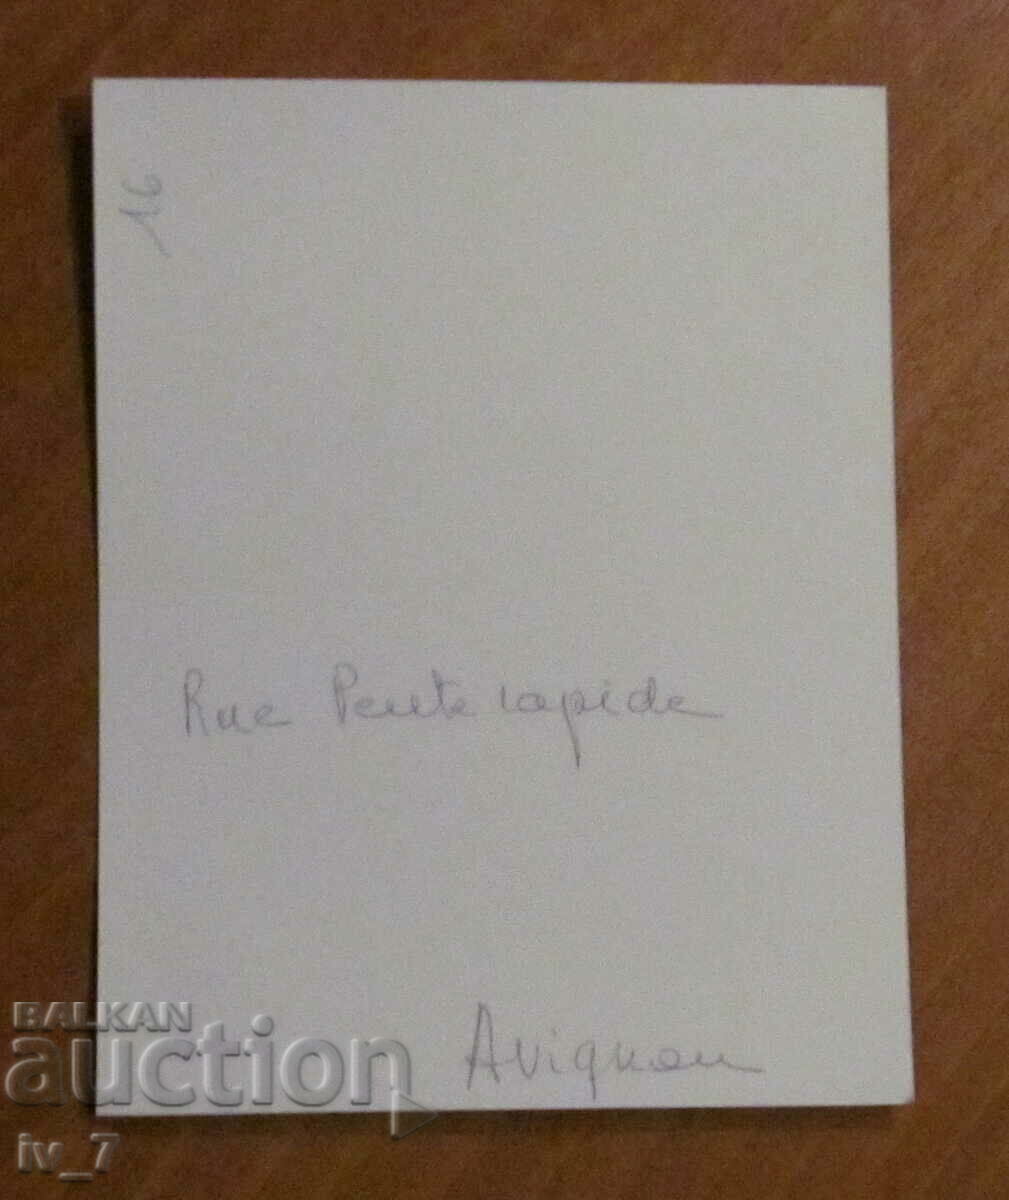 16
Rue Pente rapide
Avignon
BALKAN
auction
iv_7